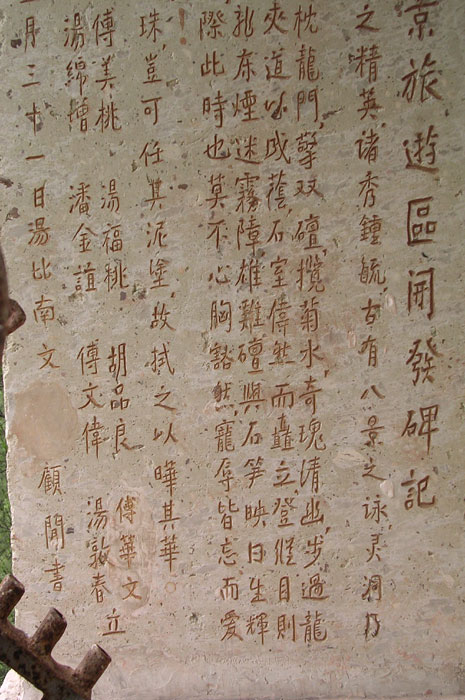 京旅遊區開發碑記
之精英诸秀鍾毓,古有八景之咏,灵洞乃
枕龍門,擎双礶,攬菊水,奇瑰清幽,步過龍
夾道以成蔭,石室偉然而矗立,登縱目則
东煙迷霧障雄雞礶與石笋映日生輝
際此時也莫不心胸豁然,寵辱皆忘,而爱
珠,豈可任其泥塗,故拭之以曄其華。
傅美桃 湯福桃 胡品良 傅華文
湯綿增 潘金誼 傅文偉 湯敦春 立
月三十一日湯比南文 顧聞書